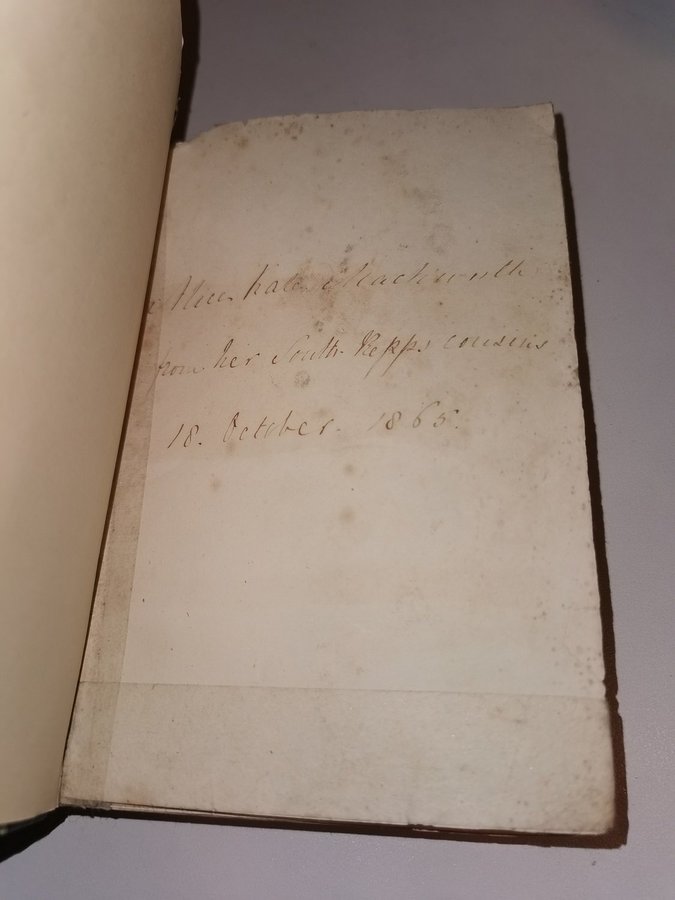 Mackworth
from her South Repps cousins
18. October. 1865.